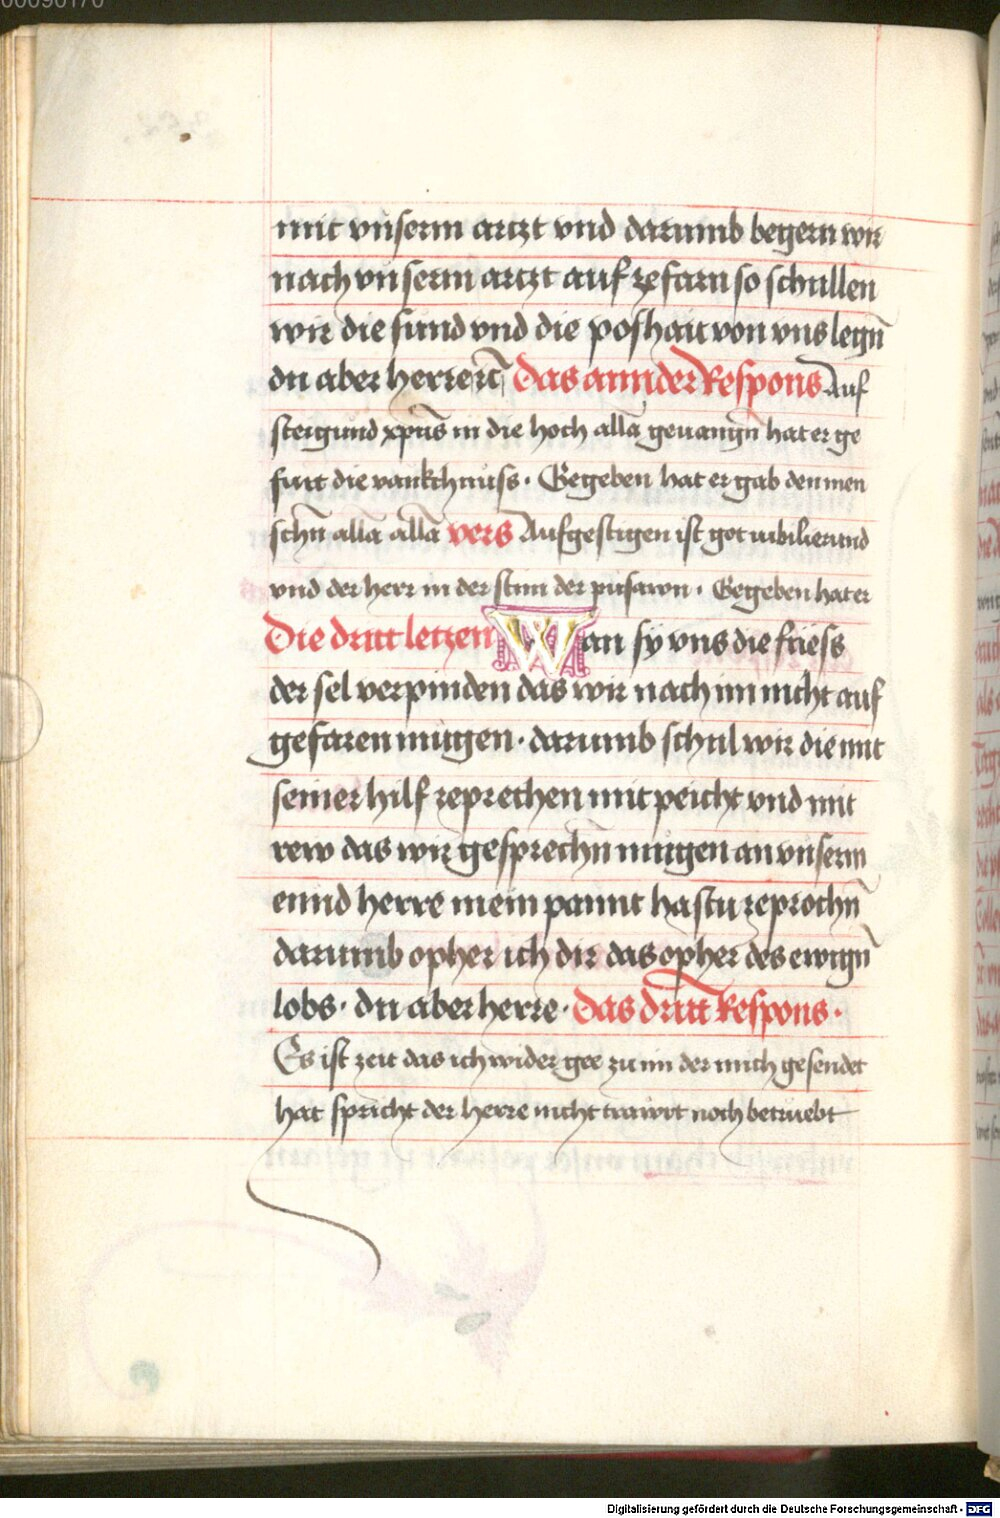 00090170
mit vnserm arczt vnd darumb begern wir
nach vnserm arczt auf zefarn so schullen
wir die sund vnd die poshait von vns legn̄
du aber herre rc̄ Das annder Respons Auf
steigund xpūs in die hoch all̄a geuangn̄ hat er ge
furt die vankchnuss · Gegeben hat er gab den men
schn̄ all̄a all̄a vers Aufgestigen ist got iubilierund
vnd der herr in der stim der pusawn · Gegeben hat er
Die dritt letzen Wan sy vns die füess
der sel verpinden das wir nach im nicht auf
gefaren mügen · darumb schul wir die mit
seiner hilf zeprechen mit peicht vnd mit
rew das wir gesprechn̄ mügen an vnserm
ennd herre mein pannt hastu zeprochn̄
darumb opher ich dir das opher des ewign̄
lobs · du aber herre · Das dritt Respons ·
Es ist zeit das ich wider gee zu im der mich gesendet
hat spricht der herre nicht trawrt noch betruebt
Digitalisierung gefördert durch die Deutsche Forschungsgemeinschaft - DFG